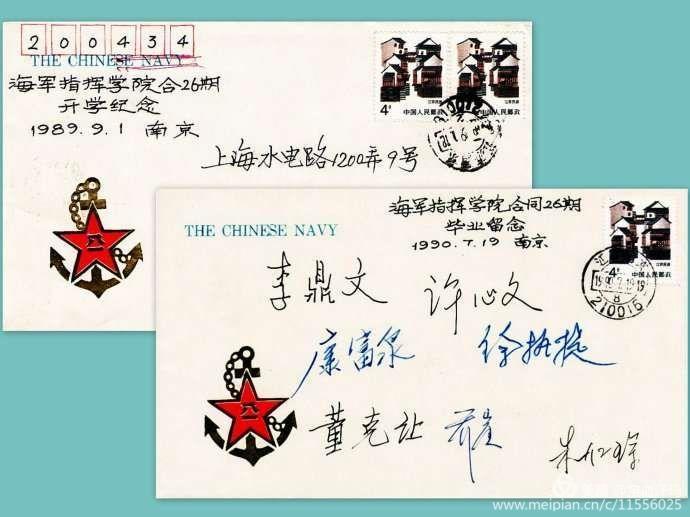 200434
THE CHINESE NAVY
海军指挥学院合26期
开学纪念
1989.9.1 南京
上海水电路1200弄9号
4分
中国人民邮政
江苏民居
中国人民邮政
江苏民居
海军指挥学院合同26期
毕业留念
1990.7.19 南京
THE CHINESE NAVY
4分
中国人民邮政
江苏民居
1990.7.19.19
8
210015
李鼎文 许心文
康富泉
董克让
八一
八一
www.meipian.cn/c/11556025